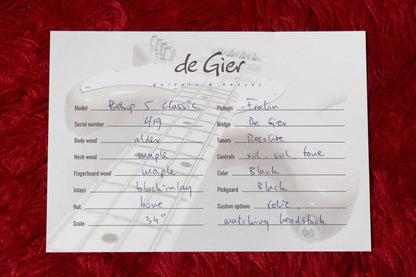 de Gier
guitars & basses
Model Bebop 5 Classic
Serial number 419
Body wood alder
Neck wood maple
Fingerboard wood maple
Inlays blockinlay
Nut bone
Scale 34"
Pickups Fralin
Bridge De Gier
Tuners Resolite
Controls vol, vol, tone
Color Black
Pickguard Black
Custom options relic,
matching headstock